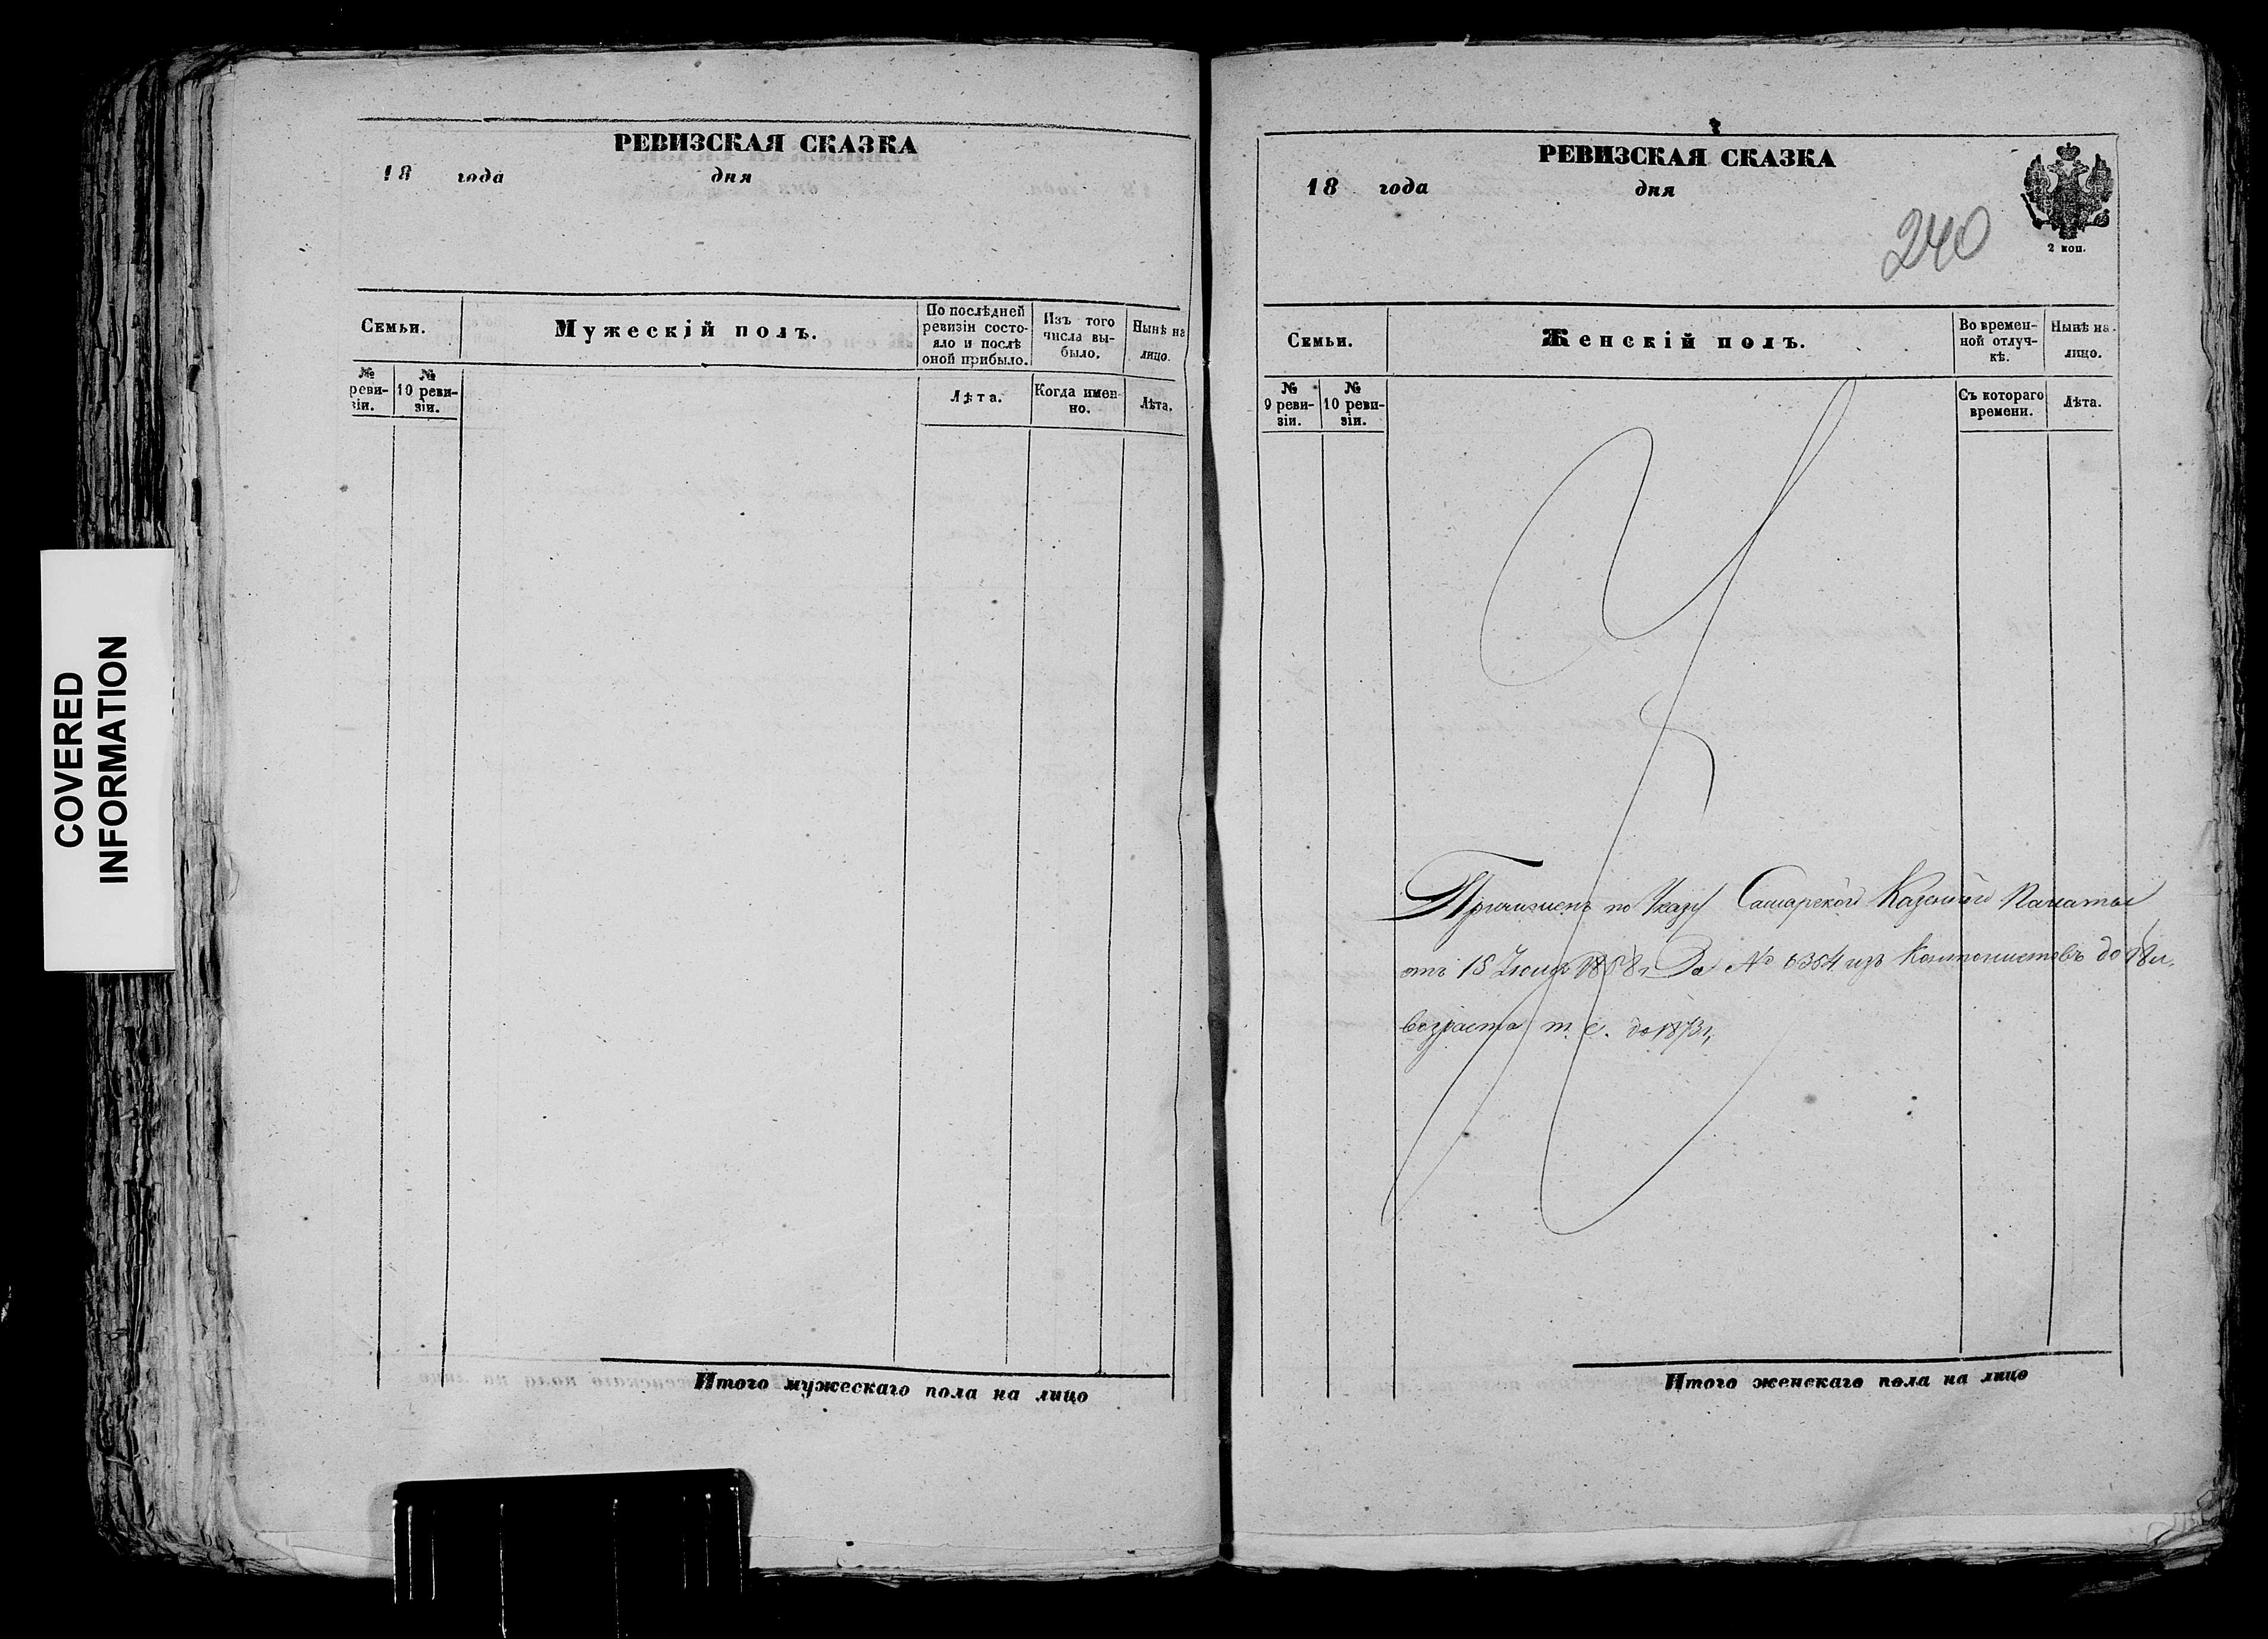 COVERED
INFORMATION
РЕВИЗСКАЯ СКАЗКА
18 года дня
Семьи.
Мужескій полъ.
По послѣдней
ревизіи состо-
яло и послѣ
оной прибыло.
Изъ того
числа вы-
было.
Нынѣ на
лицо.
№
реви-
зіи.
№
10 реви-
зіи.
Лѣта.
Когда имен-
но.
Лѣта.
Итого мужескаго пола на лицо
РЕВИЗСКАЯ СКАЗКА
18 года дня
240
2 коп.
Семьи.
Женскій полъ.
Во времен-
ной отлуч-
кѣ.
Нынѣ на-
лицо.
№
9 реви-
зіи.
№
10 реви-
зіи.
Съ котораго
времени.
Лѣта.
по Указу Самарской Казенной Палаты
отъ 15 1858 г. За № 6364 изъ Кантонистовъ до 18 л.
возраста т. е. до 1873 г.
Итого женскаго пола на лицо